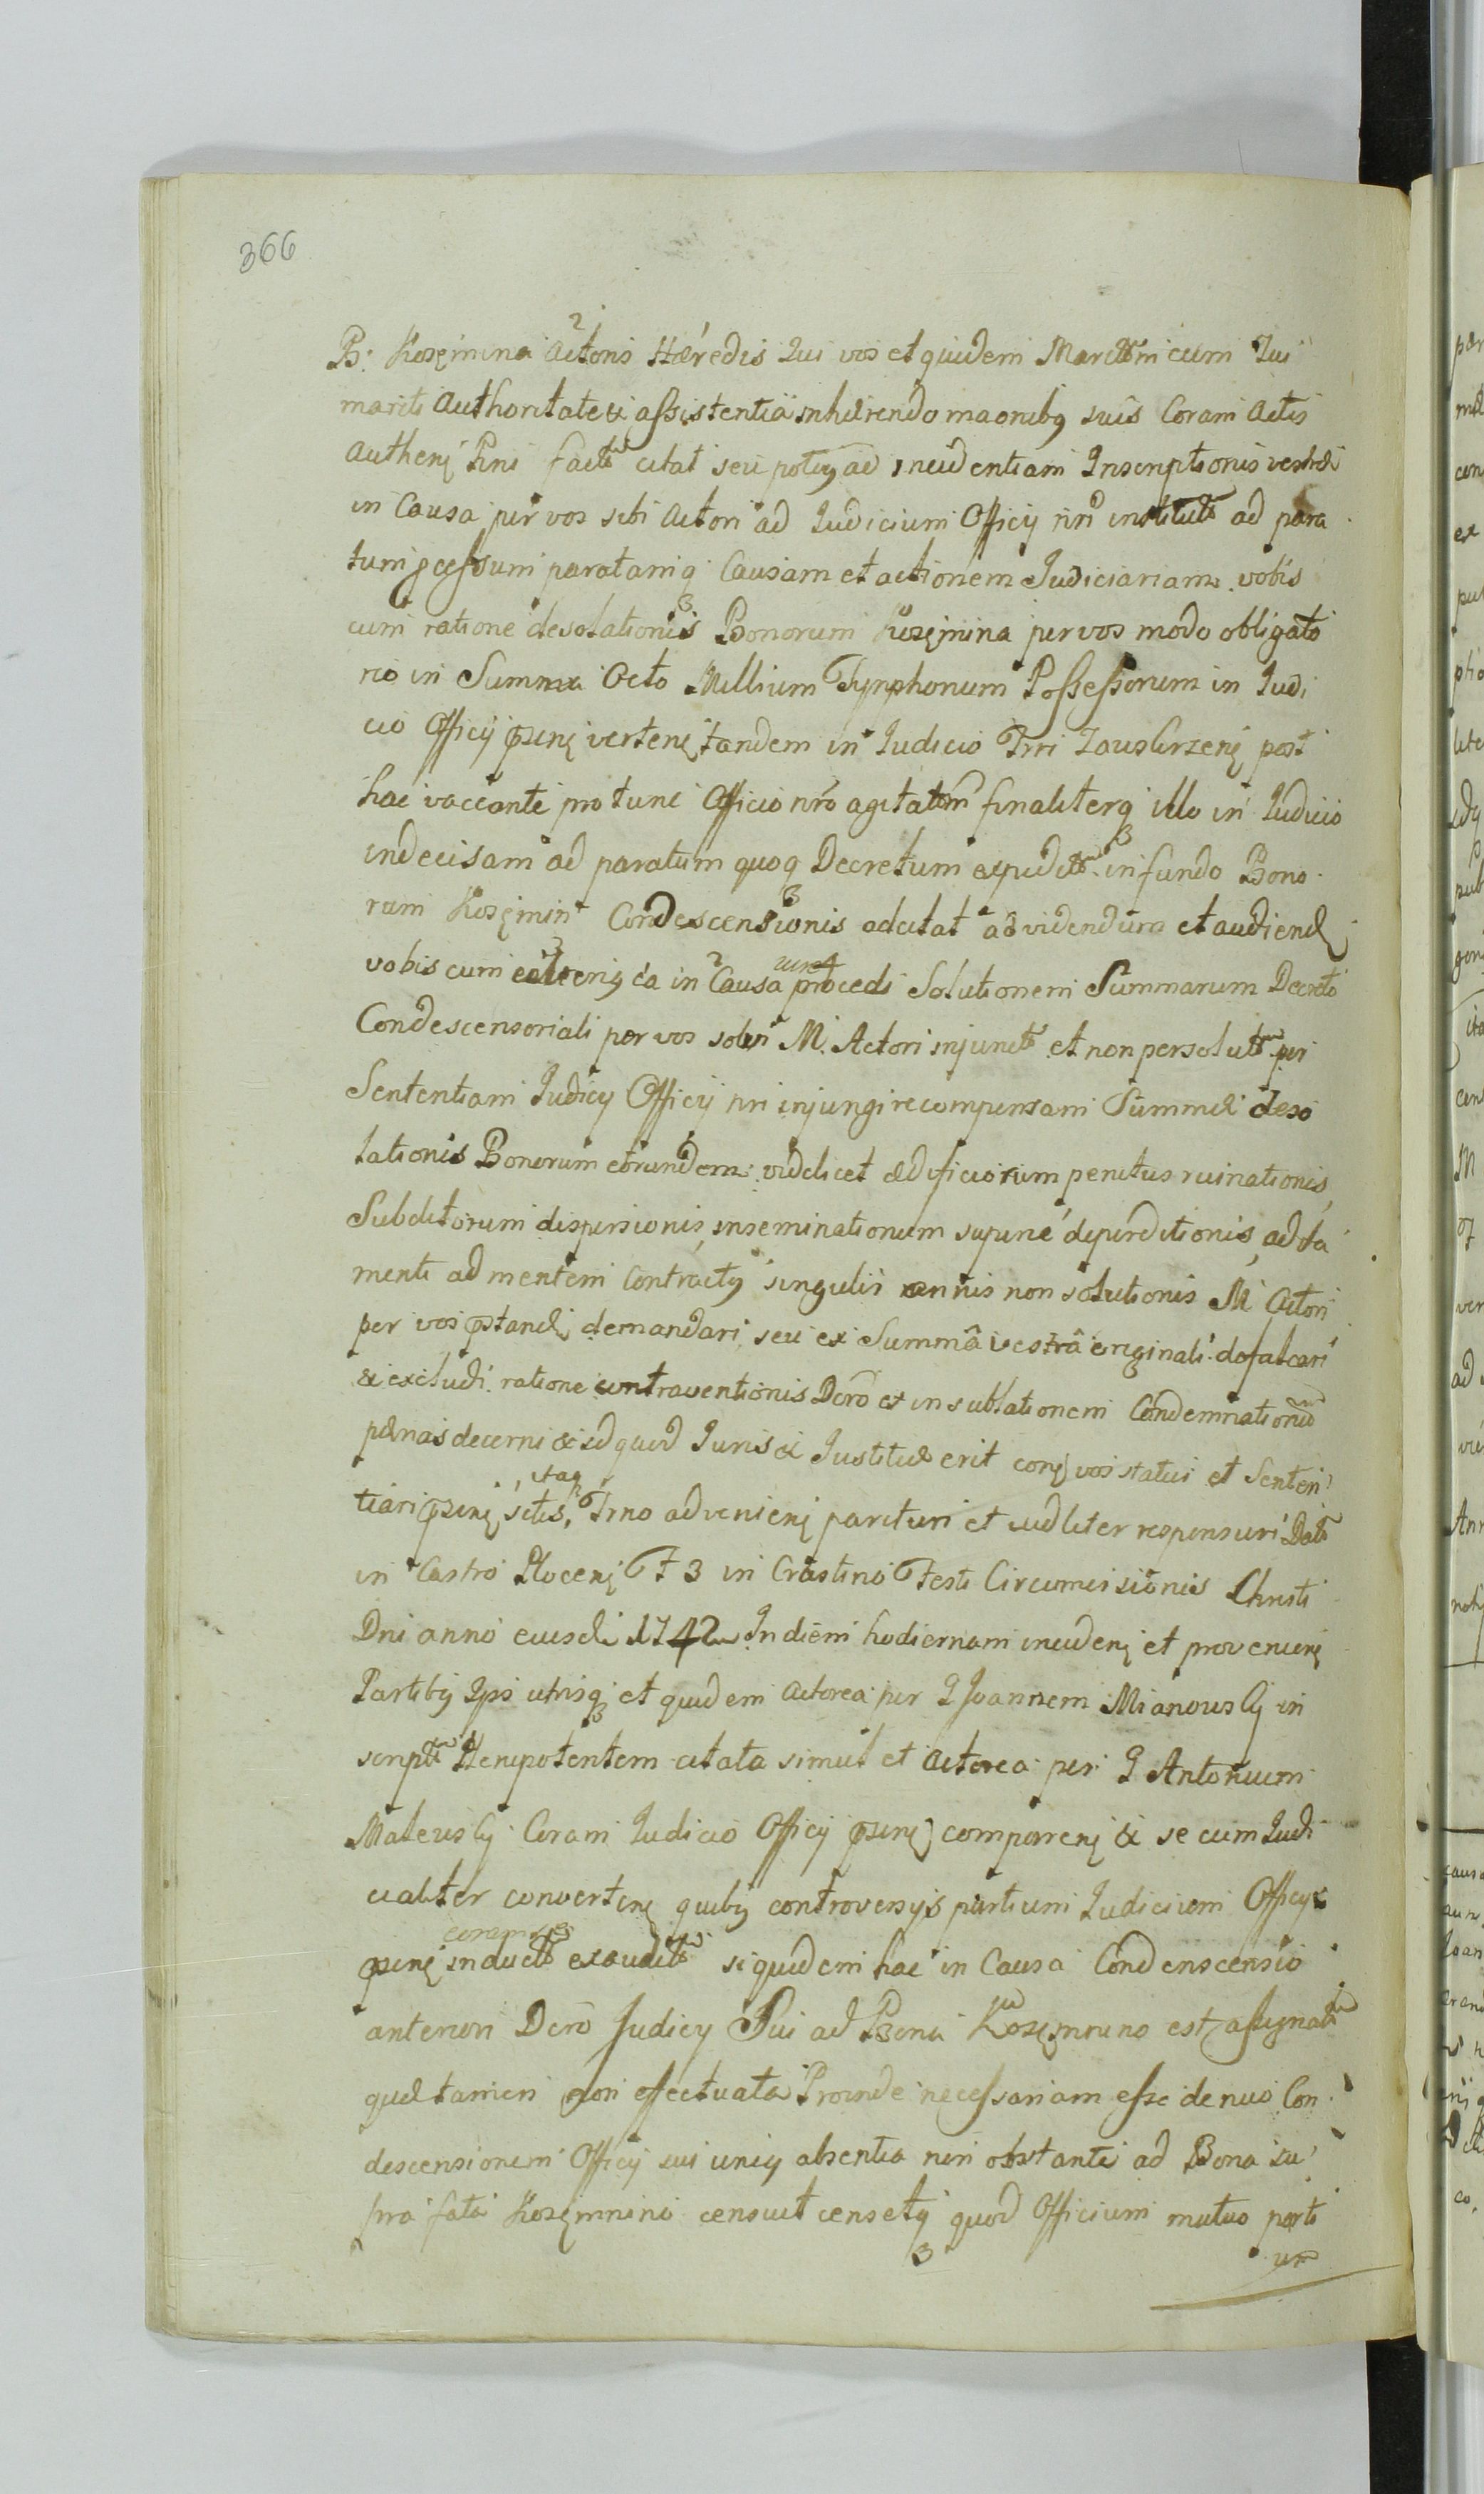 366
B: Kozęmina Actoris Hæredis Qui vos et quidem Maritam cum Tui
mariti Authoritate & assistentia inhærendo maonibq suis Coram Actis
Authenj Pnś factū citat seu potiq ad incidentiam Inscriptionis vestræ
in Causa per vos sibi Actori ad Judicium Officij nri institutā ad para
tum pcessum paratamq Causam et actionem Judiciariam vobis
cum ratione desolationis Bonorum Kozęmina per vos modo obligato
rio in Summa Octo Millium Tynphonum Possessorum in Judi
cio Officij psenj vertenj tandem in Judicio Trri Zauskrzenj post
hac vaccante pro tunc Officio nrō agitatam finaliterq illo in Judicio
indecisam ad paratum quoq Decretum expeditū in fundo Bono
rum Kozęmin Condescensionis adcitat ad videndum et audiend
vobis cum in Causa procedi Solutionem Summarum Decreto
Condescensoriali per vos solvi M. Actori injunctā et non persolutā per
Sententiam Judicij Officij nri injungi recompensam Summæ deso
lationis Bonorum eorundem videlicet ædificiorum penitus ruinationis
Subditorum dispersionis, inseminationum supinè deperditionis, adda
menti ad mentem Contractq singulis annis non solutionis M Actori
per vos pstandi demandari seu ex Summâ vestrâ originali defalcari
& excludi ratione contraventionis Dcrō et in sublationem Condemnationū
pænas decerni & id quod Juris & Justitiæ erit conj vos statui et Senten
tiari psenj sitis, itaq Trno advenienj parituri et judliter responsuri Datt
in Castro Plocenj F 3 in Crastino Festi Circumcisionis Christi
Dni anno eiusdē 1742 In diem hodiernam incidenj et provenienj
Partibq Ipś utrisq et quidem Actorea per G Joannem Mianowskj in
scriptū Plenipotentem citata simul et Actorea per G Antonium
Mateuskj Coram Judicio Officij psenj comparenj & se cum Judi
cialiter convertenj quibq controversijs partium Judicium Officij
psenj coram se inductis exauditis siquidem hac in Causa Condenscensio
anteriori Dcrō Judicij Sui ad Bona Kozęmnino est assignata
quæ tamen non effectuata Proinde necessariam esse denuo Con
descensionem Officij sui uniq absentia non obstante ad Bona su
pra fata Kozęmnino censuit censetq quod Officium mutuo parti
um